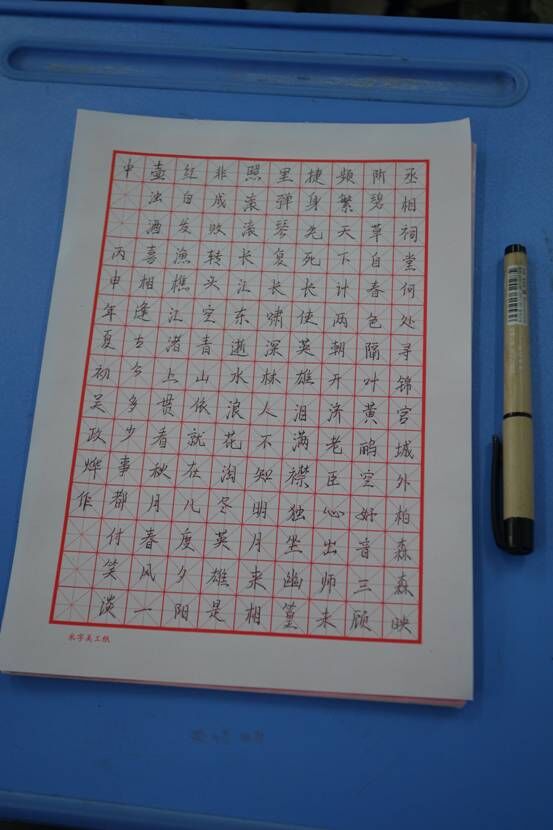 丞相祠堂何处寻锦官城外柏森森映
阶碧草自春色隔叶黄鹂空好音三顾
频繁天下计两朝开济老臣心出师未
捷身先死长使英雄泪满襟独坐幽篁
里弹琴复长啸深林人不知明月来相
照滚滚长江东逝水浪花淘尽英雄是
非成败转头空青山依就在几度夕阳
红白发渔樵江渚上贯看秋月春风一
壶浊酒喜相逢古今多少事都付笑谈
中 丙申年夏初吴政烨作
米字美工纸